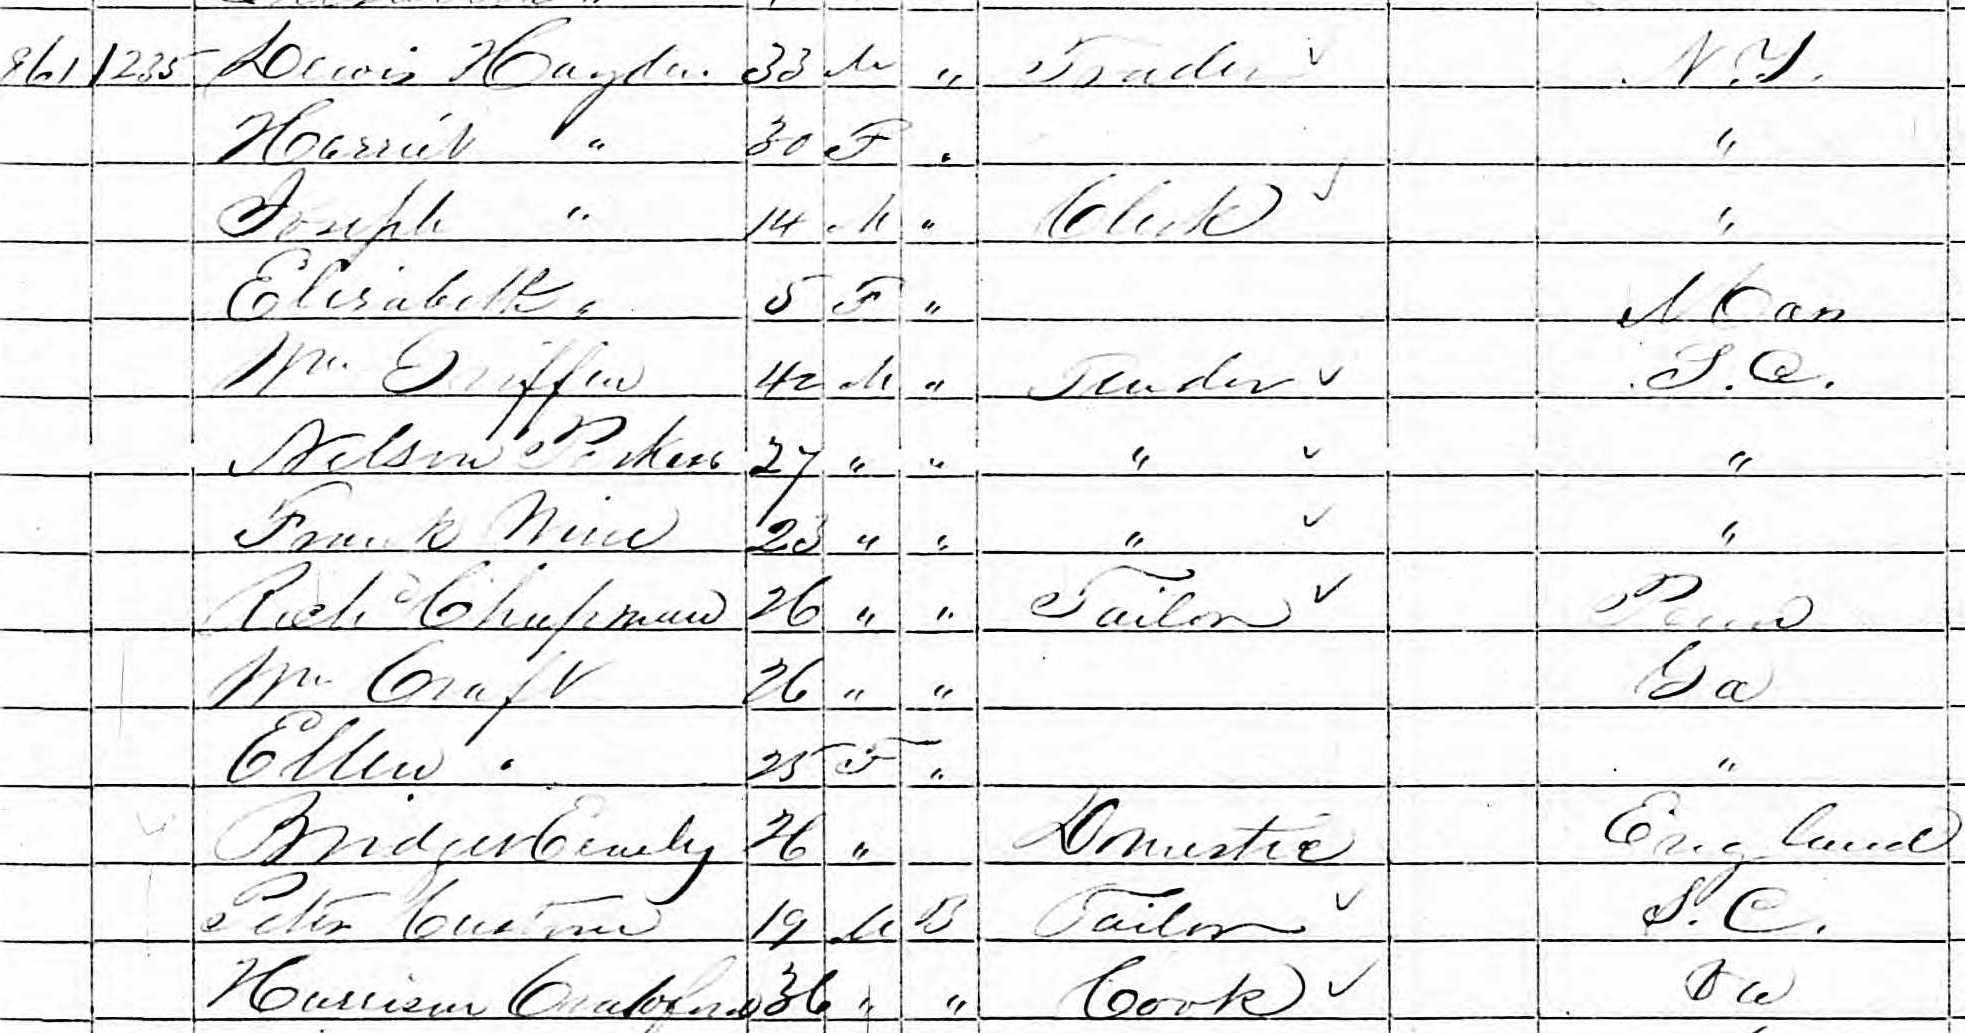 861 1235 Lewis Hayden 33 M " Trader ✓ N.Y.
Harriet " 30 F " "
Joseph " 14 M " Clerk ✓ "
Elisabeth " 5 F " Mass
Wm Griffin 42 M " Trader ✓ S.C.
Nelson Perkins 27 " " " ✓ "
Frank Wise 23 " " " ✓ "
Richd Chapman 26 " " Tailor ✓ Penn
Wm Craft 26 " " Ga
Ellen " 25 F " "
Bridget 26 " Domestic England
Peter Custom 19 M B Tailor ✓ S.C.
Harrison Crawford 36 " " Cook ✓ Va